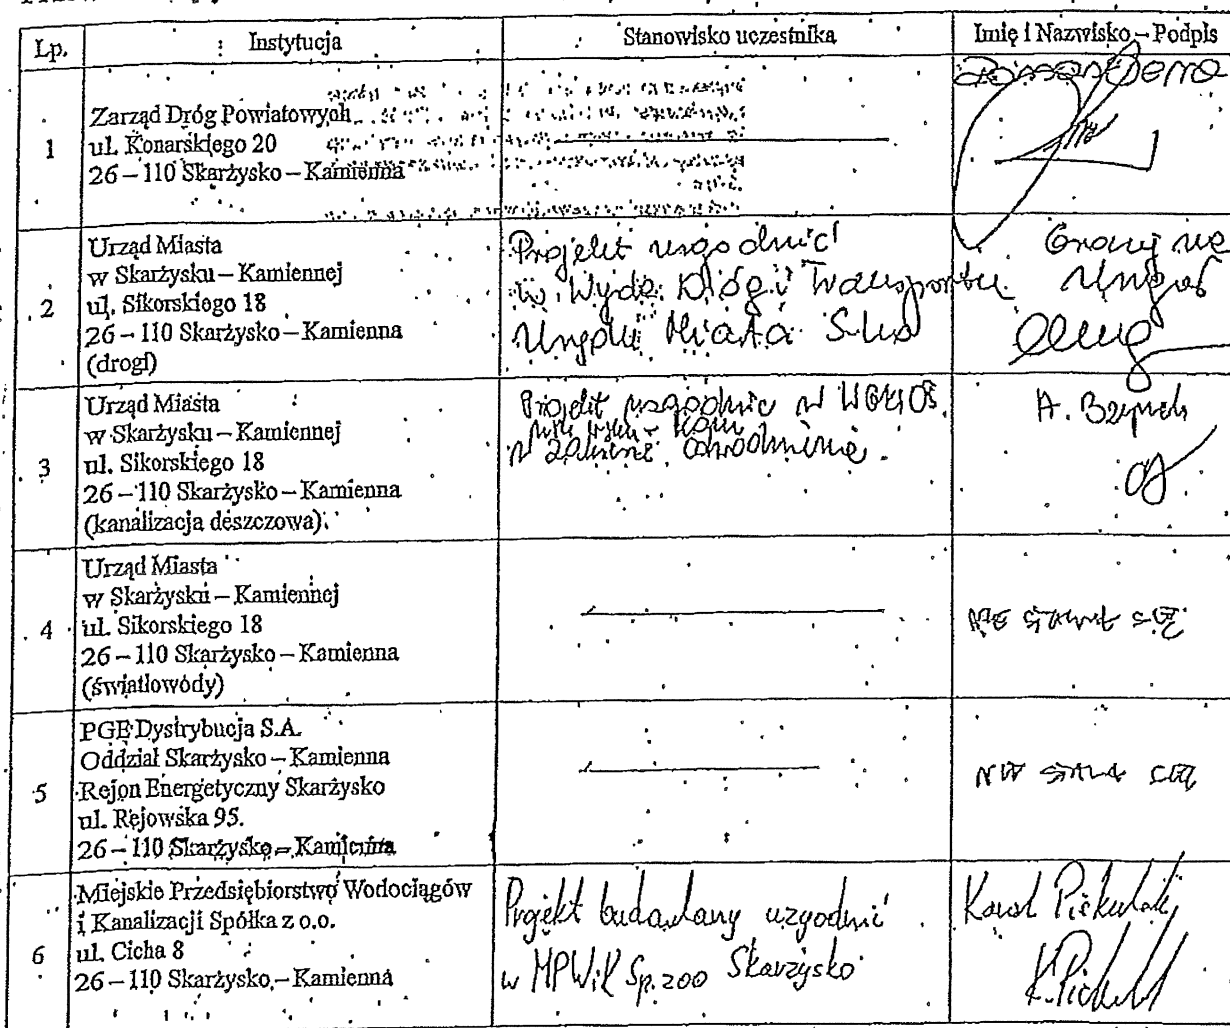 Lp. Instytucja Stanowisko uczestnika Imię i Nazwisko – Podpis
1
Zarząd Dróg Powiatowych
ul. Konarskiego 20
26 – 110 Skarżysko – Kamienna
2
Urząd Miasta
w Skarżysku – Kamiennej
ul. Sikorskiego 18
26 – 110 Skarżysko – Kamienna
(drogi)
Projekt uzgodnić
w Wydz. Dróg i Transportu
Urzędu Miasta
3
Urząd Miasta
w Skarżysku – Kamiennej
ul. Sikorskiego 18
26 – 110 Skarżysko – Kamienna
(kanalizacja deszczowa)
Projekt uzgodnić w
w zakresie odwodnienia.
A.
4
Urząd Miasta
w Skarżysku – Kamiennej
ul. Sikorskiego 18
26 – 110 Skarżysko – Kamienna
(światłowódy)
NIE STAWIŁ SIĘ
5
PGE Dystrybucja S.A.
Oddział Skarżysko – Kamienna
Rejon Energetyczny Skarżysko
ul. Rejowska 95.
26 – 110 Skarżysko – Kamienna
NIE STAWIŁ SIĘ
6
Miejskie Przedsiębiorstwo Wodociągów
i Kanalizacji Spółka z o.o.
ul. Cicha 8
26 – 110 Skarżysko – Kamienna
Projekt budowlany uzgodnić
w MPWiK Sp. zoo Skarżysko
Karol